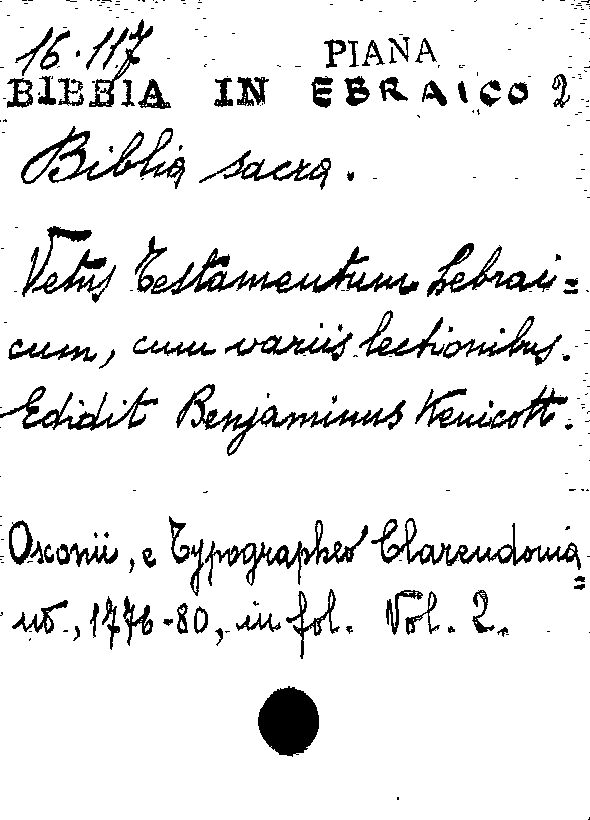 16.117 PIANA
BIBBIA IN EBRAICO 2
Biblia sacra.
Vetus Testamentum hebrai=
cum, cum variis lectionibus.
Edidit Benjaminus Kenicott.
Oxonii, e Typographeo Clarendonia=
no, 1776-80, in fol. Vol. 2.